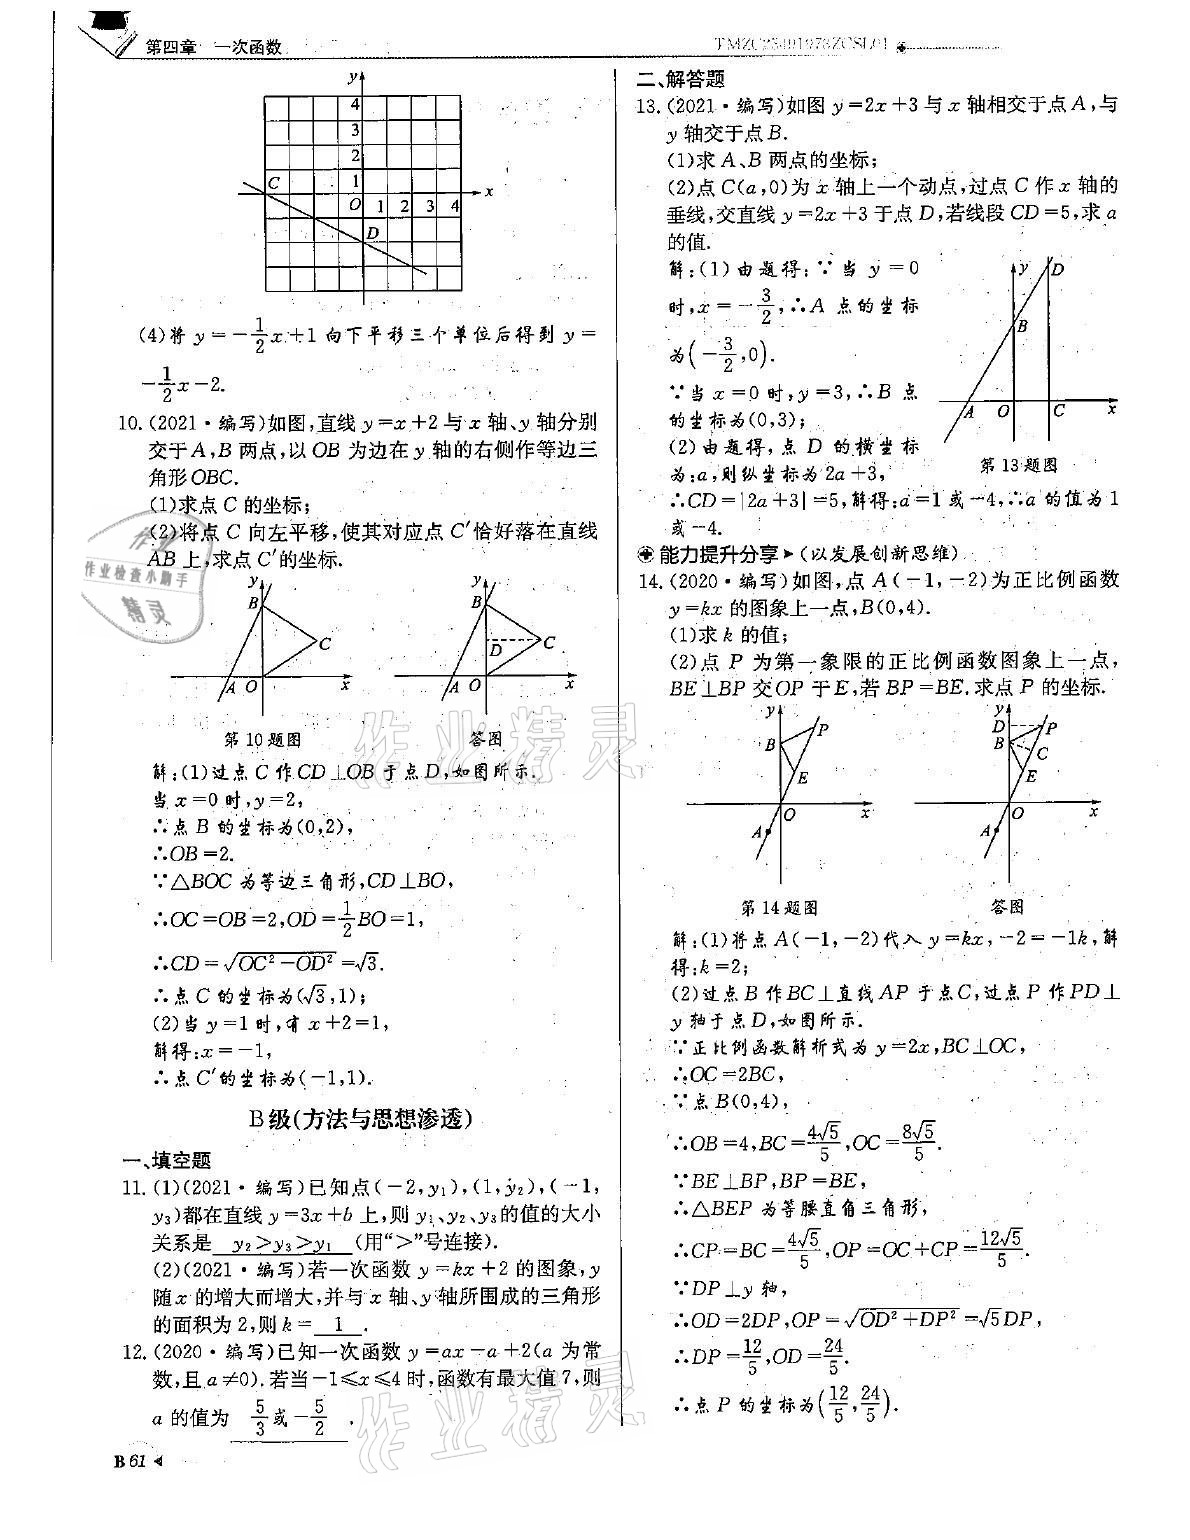 第四章 一次函数
TMZC23491978ZCSL01
y
4
3
2
1
C
O 1 2 3 4
x
D
(4)将 y=-1/2x+1 向下平移三个单位后得到 y=
-1/2x-2.
10.(2021·编写)如图,直线 y=x+2 与 x 轴、y 轴分别
交于 A,B 两点,以 OB 为边在 y 轴的右侧作等边三
角形 OBC.
(1)求点 C 的坐标;
(2)将点 C 向左平移,使其对应点 C′恰好落在直线
AB 上,求点 C′的坐标.
y B C A O x
y B D C A O x
第10题图 答图
解:(1)过点 C 作 CD⊥OB 于点 D,如图所示.
当 x=0 时,y=2,
∴点 B 的坐标为(0,2),
∴OB=2.
∵△BOC 为等边三角形,CD⊥BO,
∴OC=OB=2,OD=1/2BO=1,
∴CD=√(OC²-OD²)=√3.
∴点 C 的坐标为(√3,1);
(2)当 y=1 时,有 x+2=1,
解得:x=-1,
∴点 C′的坐标为(-1,1).
B级(方法与思想渗透)
一、填空题
11.(1)(2021·编写)已知点(-2,y₁),(1,y₂),(-1,
y₃)都在直线 y=3x+b 上,则 y₁、y₂、y₃的值的大小
关系是 y₂>y₃>y₁ (用“>”号连接).
(2)(2021·编写)若一次函数 y=kx+2 的图象,y
随 x 的增大而增大,并与 x 轴、y 轴所围成的三角形
的面积为 2,则 k= 1 .
12.(2020·编写)已知一次函数 y=ax-a+2(a 为常
数,且 a≠0).若当-1≤x≤4 时,函数有最大值 7,则
a 的值为 5/3或-5/2 .
B61
二、解答题
13.(2021·编写)如图 y=2x+3 与 x 轴相交于点 A,与
y 轴交于点 B.
(1)求 A、B 两点的坐标;
(2)点 C(a,0)为 x 轴上一个动点,过点 C 作 x 轴的
垂线,交直线 y=2x+3 于点 D,若线段 CD=5,求 a
的值.
解:(1)由题得:∵当 y=0
时,x=-3/2,∴A 点的坐标
为(-3/2,0).
∵当 x=0 时,y=3,∴B 点
的坐标为(0,3);
(2)由题得,点 D 的横坐标
为:a,则纵坐标为 2a+3,
y D B A O C x
第13题图
∴CD=|2a+3|=5,解得:a=1 或-4,∴a 的值为 1
或-4.
能力提升分享(以发展创新思维)
14.(2020·编写)如图,点 A(-1,-2)为正比例函数
y=kx 的图象上一点,B(0,4).
(1)求 k 的值;
(2)点 P 为第一象限的正比例函数图象上一点,
BE⊥BP 交 OP 于 E,若 BP=BE.求点 P 的坐标.
y P B E O x A
y D P B C E O x A
第14题图 答图
解:(1)将点 A(-1,-2)代入 y=kx,-2=-1k,解
得:k=2;
(2)过点 B 作 BC⊥直线 AP 于点 C,过点 P 作 PD⊥
y 轴于点 D,如图所示.
∵正比例函数解析式为 y=2x,BC⊥OC,
∴OC=2BC,
∵点 B(0,4),
∴OB=4,BC=4√5/5,OC=8√5/5.
∵BE⊥BP,BP=BE,
∴△BEP 为等腰直角三角形,
∴CP=BC=4√5/5,OP=OC+CP=12√5/5.
∵DP⊥y 轴,
∴OD=2DP,OP=√(OD²+DP²)=√5DP,
∴DP=12/5,OD=24/5.
∴点 P 的坐标为(12/5,24/5).
作业
作业检查小助手
精灵
作业精灵
作业精灵